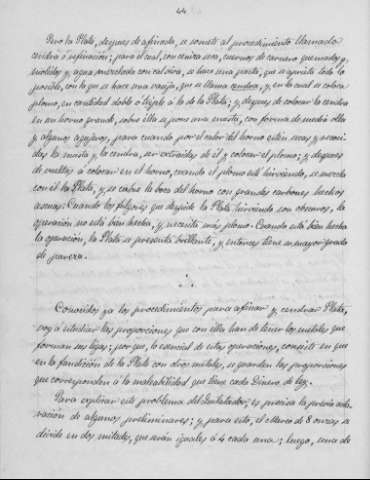 44
Pero la Plata, despues de afinada, se somete al procedimiento llamado
cendra ó copelacion; para el cual, con ceniza seca, cuernos de carnero quemados y
molidos y agua mezclada con cal viva, se hace una pasta, que se aprieta todo lo
posible, con lo que se hace una vasija, que se llama cendra, y en la cual se coloca
plomo, en cantidad doble ó triple á la de la Plata; y despues de colocar la cendra
en un horno grande, sobre ella se pone una mufla, con forma de media olla
y algunos agujeros, para cuando por el calor del horno estén secas y recoci-
das la mufla y la cendra, ser extraidas de él y colocar el plomo; y despues
de vueltas á colocar en el horno, cuando el plomo está hirviendo, se mezcla
con él la Plata, y se cubre la boca del horno con grandes carbones hechos
ascuas. Cuando los fulgores que despide la Plata hirviendo son obscuros, la
operacion no está bien hecha, y necesita más plomo. Cuando está bien hecha
la operacion, la Plata se presenta brillante, y entonces tiene su mayor grado
de pureza.
Conocidos ya los procedimientos para afinar y cendrar Plata,
voy á estudiar las proporciones que con ella han de tener los metales que
forman sus ligas; por que, lo esencial de estas operaciones, consiste en que
en la fundicion de la Plata con otros metales, se guarden las proporciones
que corresponden á la maleabilidad que tiene cada Dinero de ley.
Para explicar este problema del Ensayador, es precisa la previa acla-
racion de algunos preliminares; y para esto, el Marco de 8 onzas se
divide en dos mitades, que serán iguales á 4 cada una; luego, una de